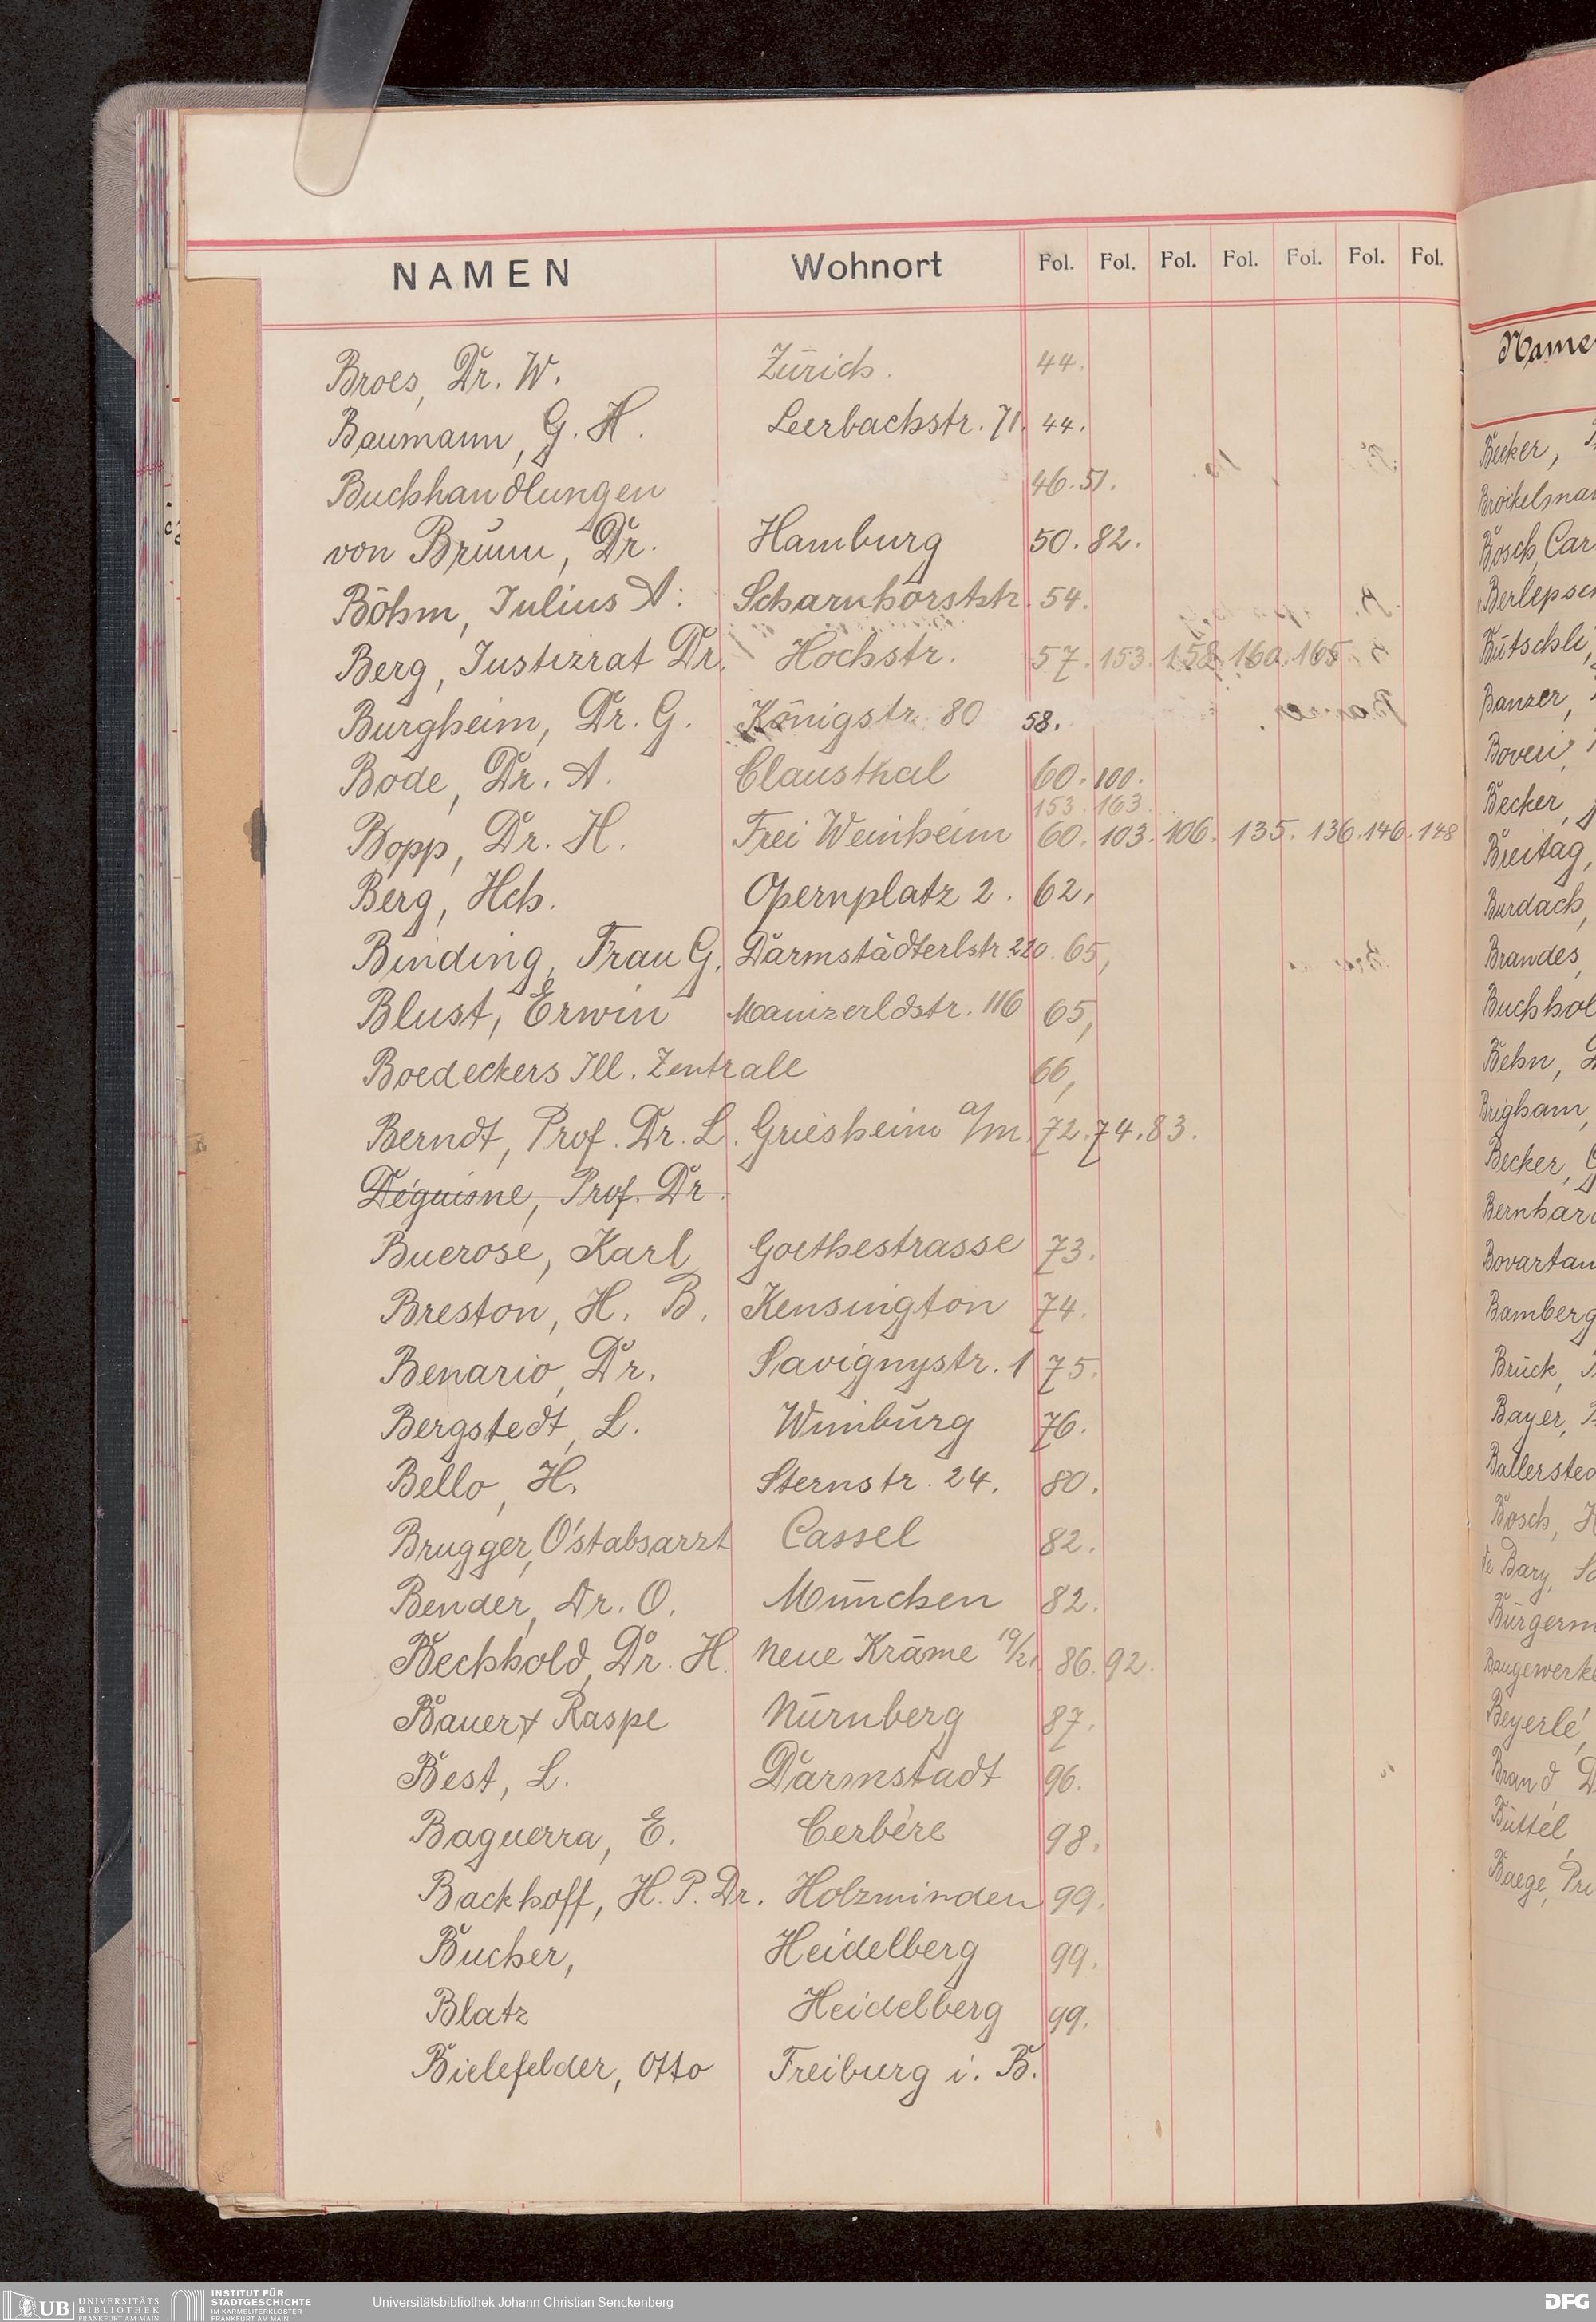 NAMEN Wohnort Fol. Fol. Fol. Fol. Fol. Fol. Fol.
Broes, Dr. W. Zürich. 44.
Baumann, G. H. Leerbachstr. 71. 44.
Buchhandlungen 46. 51.
von Brunn, Dr. Hamburg 50. 82.
Böhm, Julius A. Scharnhorststr. 54.
Berg, Justizrat Dr. Hochstr. 57. 153. 158. 160. 165.
Burgheim, Dr. G. Königstr. 80 58.
Bode, Dr. A. Clausthal 60. 100.
153. 163.
Bopp, Dr. H. Frei Weinheim 60. 103. 106. 135. 136. 146. 148
Berg, Hch. Opernplatz 2. 62.
Binding, Frau G. Darmstädterldstr. 220. 65,
Blust, Erwin Mainzerldstr. 116 65,
Boedeckers Ill. Zentrale 66,
Berndt, Prof. Dr. L. Griesheim a/m. 72. 74. 83.
Déguisne, Prof. Dr.
Buerose, Karl Goethestrasse 73.
Breston, H. B. Kensington 74.
Benario, Dr. Savignystr. 1 75.
Bergstedt, L. Wimburg 76.
Bello, H. Sternstr. 24. 80.
Brugger, O'stabsarzt Cassel 82.
Bender, Dr. O. München 82.
Bechhold, Dr. H. Neue Kräme 19/21 86. 92.
Bauer & Raspe Nürnberg 87.
Best, L. Darmstadt 96.
Baguerra, E. Cerbère 98.
Backhoff, H. P. Dr. Holzminden 99.
Bucher, Heidelberg 99.
Blatz Heidelberg 99.
Bielefelder, Otto Freiburg i. B.
Name
Becker,
Bosch, Car
Berlepsch
Bütschli,
Banzer,
Boveri,
Becker,
Breitag,
Burdach,
Brandes,
Buchhol
Behn,
Brigham,
Becker,
Bernhar
Bovartan
Bamberg
Brück,
Bayer,
Ballersted
Bosch,
de Bary,
Bürgerm
Baugewerke
Beyerlé,
Brand,
Büttel
Baege, Pri
UB UNIVERSITÄTS BIBLIOTHEK FRANKFURT AM MAIN
INSTITUT FÜR STADTGESCHICHTE IM KARMELITERKLOSTER FRANKFURT AM MAIN
Universitätsbibliothek Johann Christian Senckenberg
DFG